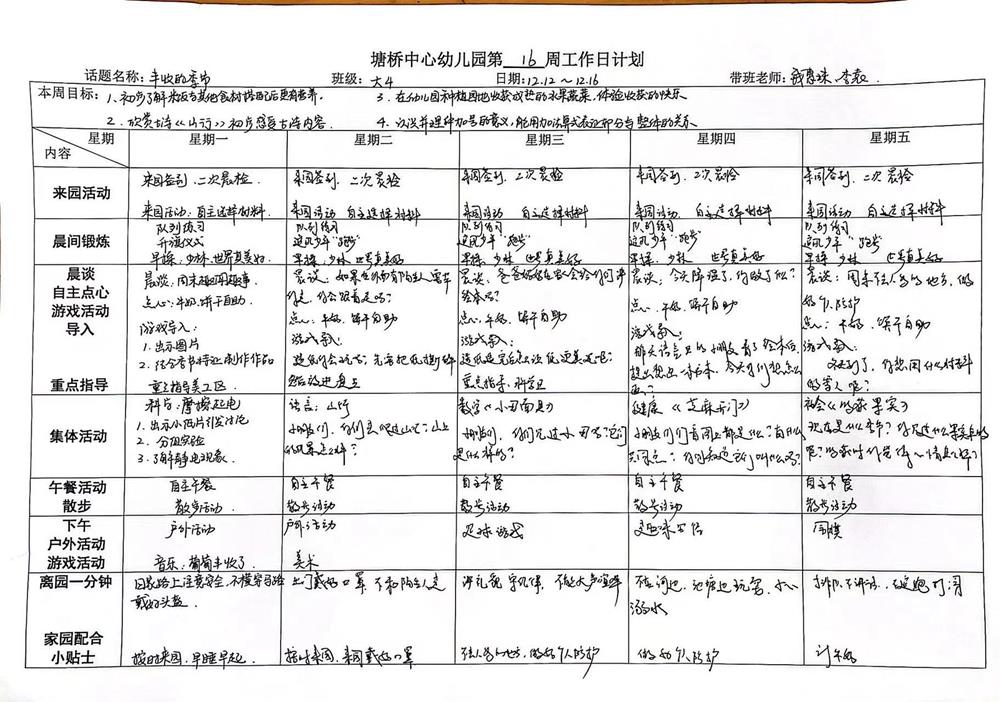 塘桥中心幼儿园第 16 周工作日计划
话题名称：丰收的季节 班级：大4 日期：12.12～12.16 带班老师：
本周目标：1、初步了解 与其他食材搭配后更有营养。 3、在幼儿园种植园地收获成熟的水果蔬菜，体验收获的快乐
2、欣赏古诗《山行》初步感受古诗内容。 4、认识并理解加号的意义，能用加法算式表征部分与整体的关系
星期 内容 星期一 星期二 星期三 星期四 星期五
来园活动
来园签到，二次晨检．
来园活动：自主选择材料．
来园签到，二次晨检
来园活动 自主选择材料
来园签到，二次晨检
来园活动 自主选择材料
来园签到，二次晨检
来园活动 自主选择材料
来园签到，二次晨检
来园活动 自主选择材料
晨间锻炼
队列练习
升旗仪式
早操：少林，世界真美好
队列练习
追风少年“跑步”
早操，少林 世界真美好
队列练习
追风少年“跑步”
早操，少林 世界真美好
队列练习
追风少年“跑步”
早操，少林 世界真美好
队列练习
追风少年“跑步”
早操，少林 世界真美好
晨谈
自主点心
游戏活动
导入
重点指导
晨谈：周末趣事
点心：牛奶、饼干自助．
游戏导入：
1．出示图片
2．结合春节特征制作作品
重点指导美工区
晨谈：如果在外面有陌生人要带
你走，你会跟着走吗？
点心，牛奶，饼干自助
游戏导入：
晨谈，爸爸妈妈在家会给你们讲
绘本吗？
点心，牛奶，饼干自助
游戏导入：
重点指导：科学区
晨谈：今天降温了，你 了吗？
点心，牛奶，饼干自助
游戏导入：
晨谈：周末去人多的地方，做
好个人防护
点心：牛奶，饼干自助
游戏导入：
集体活动
科学：摩擦起电
1．出示小纸片引发讨论
2．分组实验
3．了解静电现象．
语言：山行
小朋友们，你们去爬过山吗？山上
的风景是怎样？
数学《小田面具》
小朋友们，你们见过 田吗？它们
是什么样的？
健康《芝麻开门》
小朋友们 上都是什么？有什么
共同点？你们知道它们叫什么吗？
社会《收获果实》
现在是什么季节？
午餐活动
散步
自主午餐
散步活动
自主午餐
散步活动
自主午餐
散步活动
自主午餐
散步活动
自主午餐
散步活动
下午
户外活动
游戏活动
户外活动
音乐：葡萄丰收了．
户外活动
美术
足球游戏
围棋
离园一分钟
回家路上注意安全，不横穿马路
戴好头盔．
出门戴好口罩，不和陌生人走
讲礼貌 守纪律，不能大声喧哗
不在河边，池塘边玩耍，小心
溺水
排队不讲话，不追跑打闹
家园配合
小贴士
按时来园，早睡早起．
按时来园，来园戴好口罩
去人多的地方，做好个人防护
做好个人防护